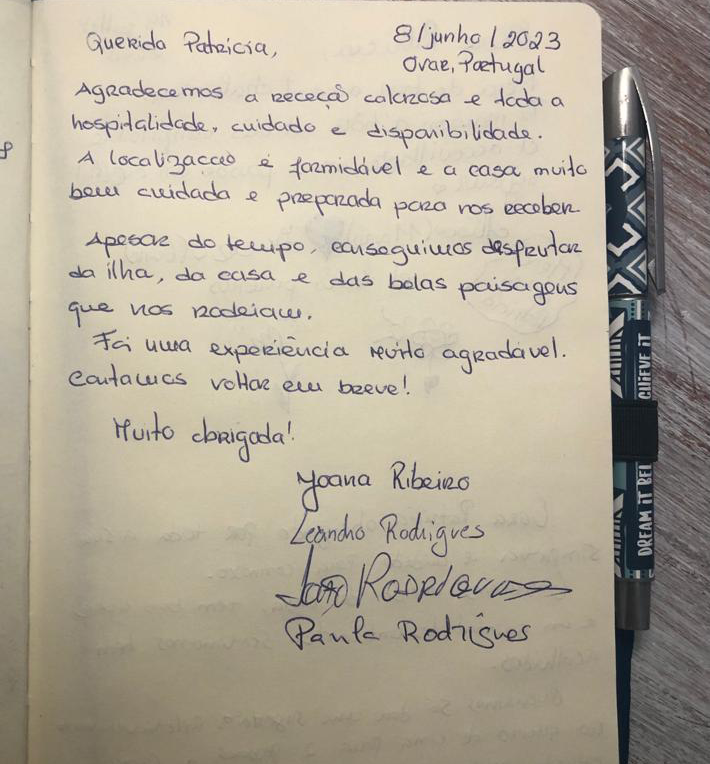 Querida Patrícia,
8/junho/2023
Ovar, Portugal
Agradecemos a receção calorosa e toda a
hospitalidade, cuidado e disponibilidade.
A localização é formidável e a casa muito
bem cuidada e preparada para nos receber.
Apesar do tempo, conseguimos desfrutar
da ilha, da casa e das belas paisagens
que nos rodeiam.
Foi uma experiência muito agradável.
Contamos voltar em breve!
Muito obrigada!
Joana Ribeiro
Leandro Rodrigues
João Rodrigues
Paula Rodrigues
DREAM IT BEL
CHIEVE IT